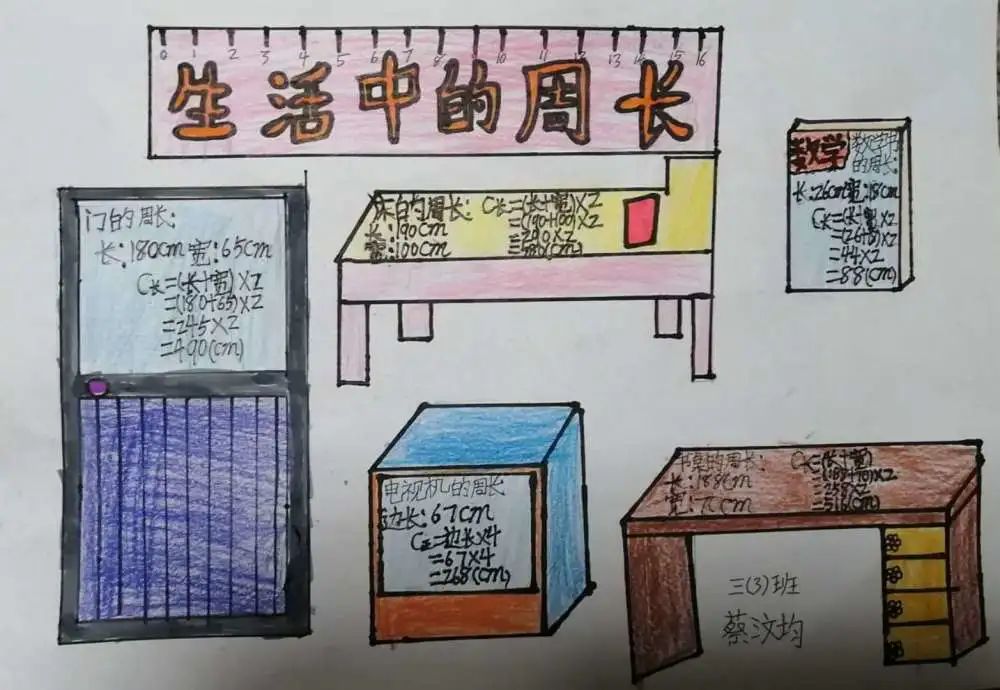 0 1 2 3 4 5 6 7 8 10 11 12 13 14 15 16
生活中的周长
门的周长:
长:180cm 宽:65cm
C长=(长+宽)×2
=(180+65)×2
=245×2
=490(cm)
床的周长:
长:190cm
宽:100cm
C长=(长+宽)×2
=(190+100)×2
=290×2
=580(cm)
数学
数学书
的周长:
长:26cm宽:18cm
C长=(长+宽)×2
=(26+18)×2
=44×2
=88(cm)
电视机的周长
边长:67cm
C正=边长×4
=67×4
=268(cm)
书桌的周长:
长:188cm
宽:70cm
C长=(长+宽)
=(188+70)×2
=516(cm)
三(3)班
蔡汶均